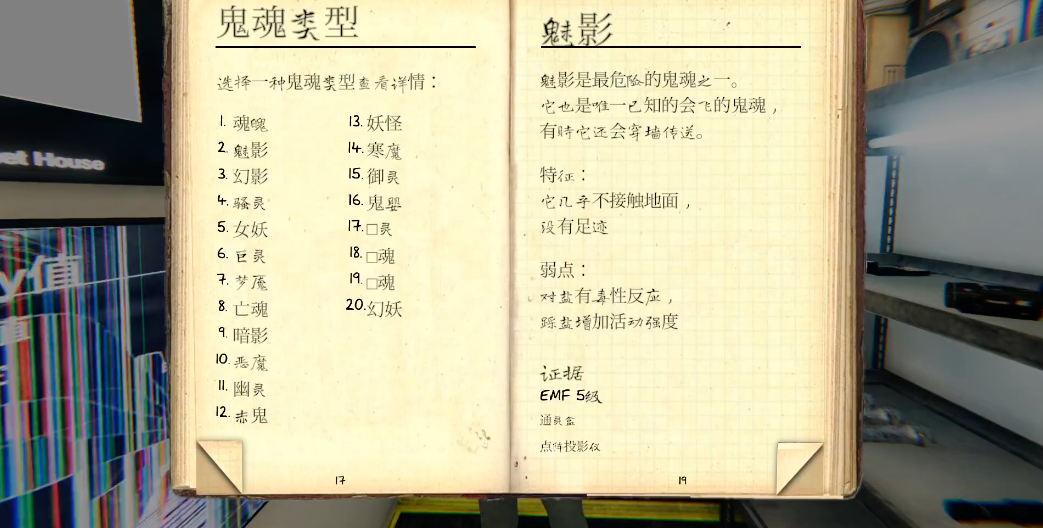 鬼魂类型
选择一种鬼魂类型查看详情：
1. 魂魄
2. 魅影
3. 幻影
4. 骚灵
5. 女妖
6. 巨灵
7. 梦魇
8. 亡魂
9. 暗影
10. 恶魔
11. 幽灵
12. 赤鬼
13. 妖怪
14. 寒魔
15. 御灵
16. 鬼婴
17. □灵
18. □魂
19. □魂
20. 幻妖
17
魅影
魅影是最危险的鬼魂之一。
它也是唯一已知的会飞的鬼魂，
有时它还会穿墙传送。
特征：
它几乎不接触地面，
没有足迹
弱点：
对盐有毒性反应，
踩盐增加活动强度
证据
EMF 5级
通灵盒
点阵投影仪
19
et House
y值
值